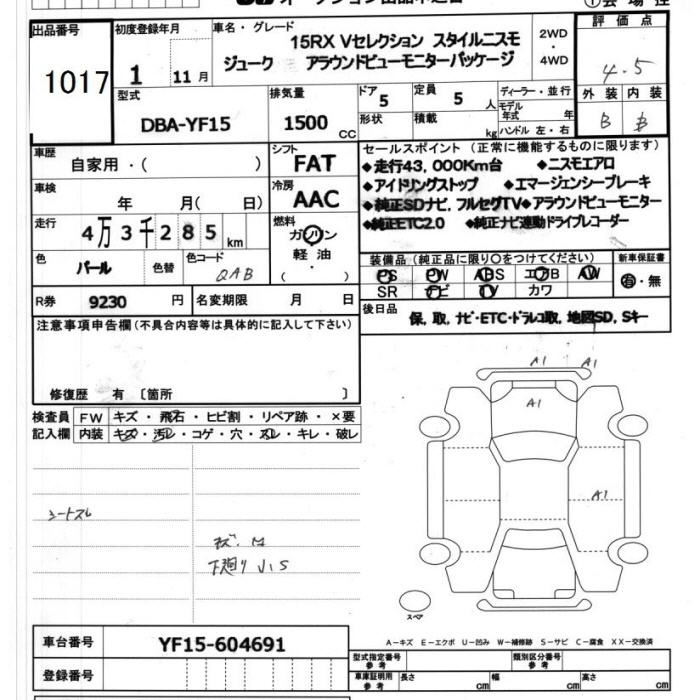 出品番号
1017
初度登録年月
1 11月
車名・グレード
15RX Vセレクション スタイルニスモ
ジューク アラウンドビューモニターパッケージ
2WD
・
4WD
評価点
4.5
外装 内装
B B
型式
DBA-YF15
排気量
1500 CC
ドア
5
定員
5 人
形状
積載
kg
ディーラー・並行
モデル年式 年
ハンドル 左・右
車歴
自家用・( )
シフト
FAT
車検
年 月( 日)
冷房
AAC
走行
4万3千285km
燃料
ガソリン
軽油
( ・ )
色
パール
色替
色コード
QAB
R券
9230 円
名変期限 月 日
セールスポイント (正常に機能するものに限ります)
◆走行43,000Km台 ◆ニスモエアロ
◆アイドリングストップ ◆エマージェンシーブレーキ
◆純正SDナビ,フルセグTV◆アラウンドビューモニター
◆純正ETC2.0 ◆純正ナビ連動ドライブレコーダー
装備品 (純正品に限り○をつけてください)
新車保証書
PS PW ABS エアB AW
SR ナビ TV カワ
有・無
後日品
保,取,ナビ・ETC・ドラレコ取,地図SD,Sキー
注意事項申告欄(不具合内容等は具体的に記入して下さい)
修復歴 有 〔箇所 〕
検査員
記入欄
FW キズ・飛石・ヒビ割・リペア跡・×要
内装 キズ・汚レ・コゲ・穴・スレ・キレ・破レ
シートスレ
下廻り小S
A1 A1
A1
A1
スペア
A-キズ E-エクボ U-凹み W-補修跡 S-サビ C-腐食 XX-交換済
車台番号
YF15-604691
登録番号
型式指定番号
参考
類別区分番号
参考
車庫証明用
参考
長さ cm
幅 cm
高さ cm